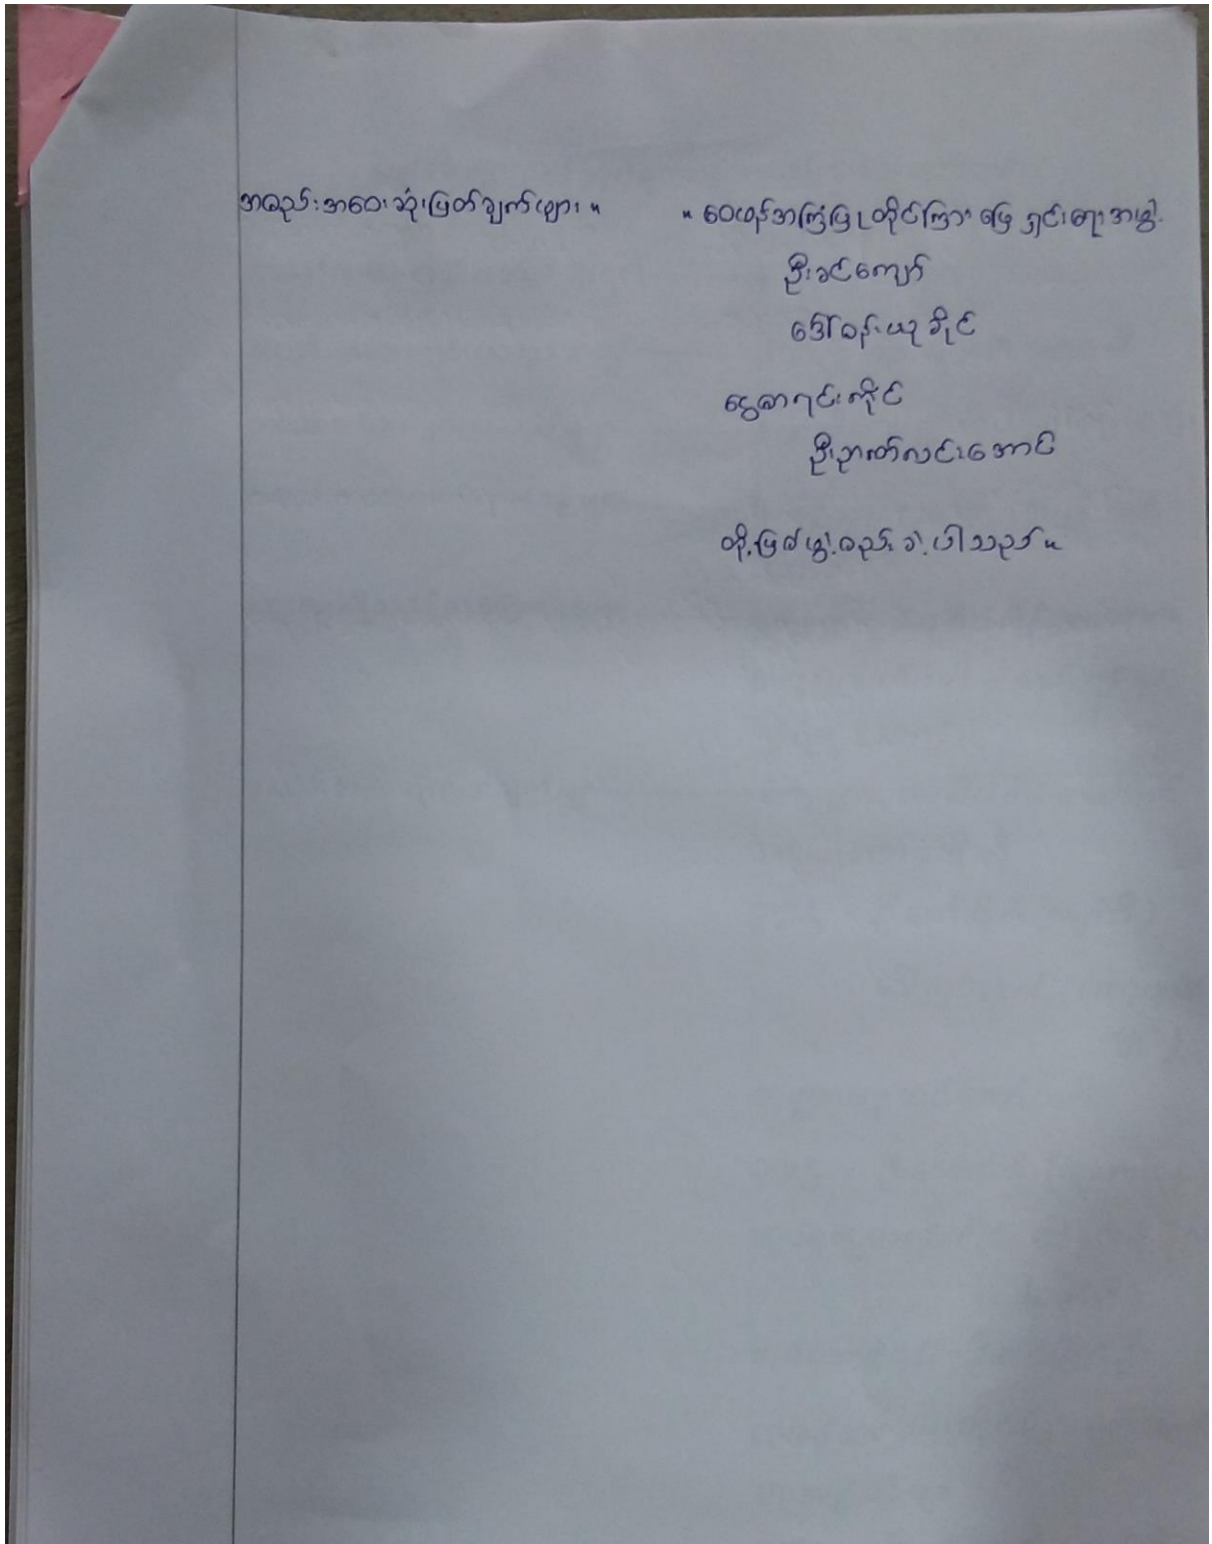 အစည်းအဝေးဆုံးဖြတ်ချက်များ။ ။ ဝေဖန်အကြံပြုတိုင်ကြားဖြေရှင်းရေးအဖွဲ့
ဦးခင်ကျော်
ဒေါ်ခန်းယုခိုင်
ငွေစာရင်းကိုင်
ဦးဉာဏ်လင်းအောင်
တို့ဖြင့်ဖွဲ့စည်းခဲ့ပါသည်။